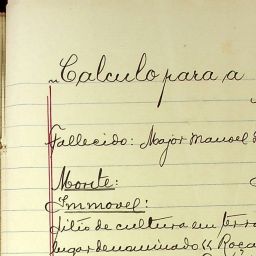 Calculo para a
Fallecido: Major Manoel
Monte:
Immovel:
Sitio de cultura em terr
lugar denominado "Roça